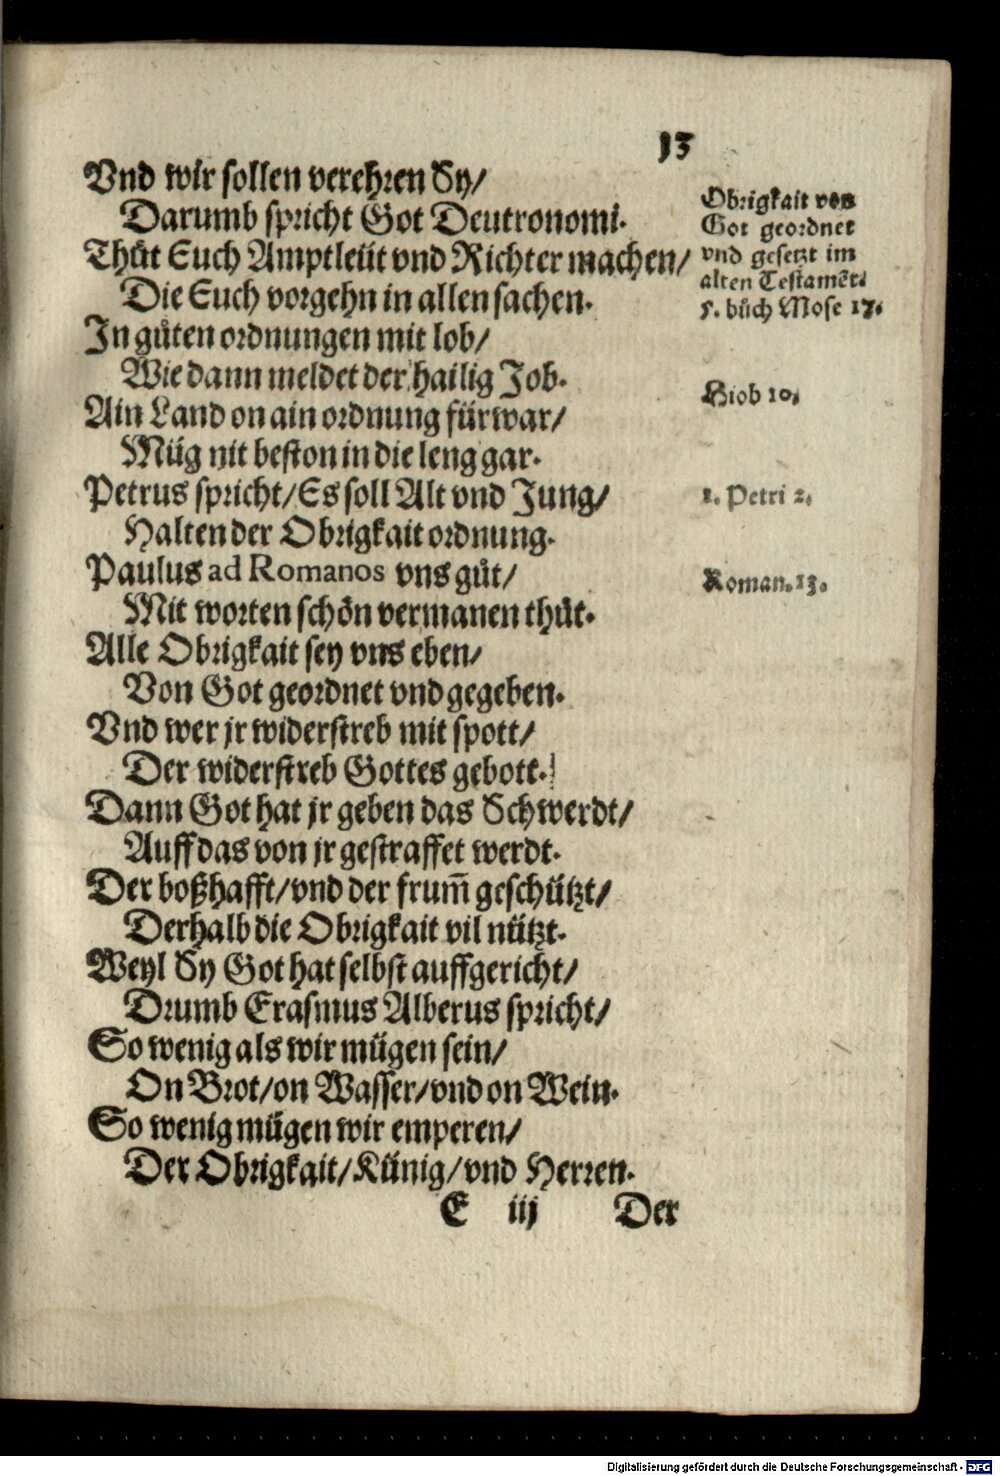 13
Vnd wir sollen verehren Sy/
Darumb spricht Got Deutronomi.
Thůt Euch Amptleüt vnd Richter machen/
Die Euch vorgehn in allen sachen.
In gůten ordnungen mit lob/
Wie dann meldet der hailig Job.
Ain Land on ain ordnung fürwar/
Müg nit beston in die leng gar.
Petrus spricht/Es soll Alt vnd Jung/
Halten der Obrigkait ordnung.
Paulus ad Romanos vns gůt/
Mit worten schön vermanen thůt.
Alle Obrigkait sey vns eben/
Von Got geordnet vnd gegeben.
Vnd wer jr widerstreb mit spott/
Der widerstreb Gottes gebott.
Dann Got hat jr geben das Schwerdt/
Auff das von jr gestraffet werdt.
Der boßhafft/vnd der frum̃ geschützt/
Derhalb die Obrigkait vil nützt.
Weyl Sy Got hat selbst auffgericht/
Drumb Erasmus Alberus spricht/
So wenig als wir mügen sein/
On Brot/on Wasser/vnd on Wein.
So wenig mügen wir emperen/
Der Obrigkait/Künig/vnd Herren.
E iij Der
Obrigkait von
Got geordnet
vnd gesetzt im
alten Testamẽt.
5. bůch Mose 17.
Hiob 10.
1. Petri 2.
Roman. 13.
Digitalisierung gefördert durch die Deutsche Forschungsgemeinschaft - DFG